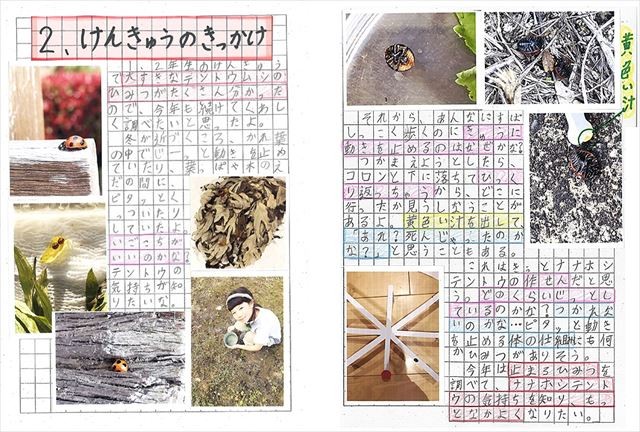 2、けんきゅうのきっかけ
1、2年生のけんきゅう
で大すきなテントウムシの
ひみつがたくさん分かった
ので、今年も続けてくわし
く調べたいと思ったよ。
冬が近づくころ、かれ葉
の中でじっと動きを止め
ていたり、葉っぱや木のえ
だの間に、
ピタッとく
っついたり
していたよ。
いごこちが
いいのかな。
テントウの
気持ちが知
りたいな。
黄色い汁
それから、あんなにすば
しっこく歩くのにきゅうに
動きを止めるのはなぜかな?
つかまえようとしたら、
コロンと下に落ちてひっく
り返っちゃうから、どこに
行ったか見うしなうことが
あるよ。黄色い汁を出して、
「あれ?死んじゃったのか
な?」と思うこともある。
これはきっとナナホシ
テントウの作せんだと思
う。どのくらいじっとし
ているのかな?
いのかな…ピタッと動き
を止める体の仕組にも何
かひみつがありそう。
今年は、止まるひみつを
調べて、ナナホシテント
ウの気持ちを知り、もっ
となかよくなりたい。